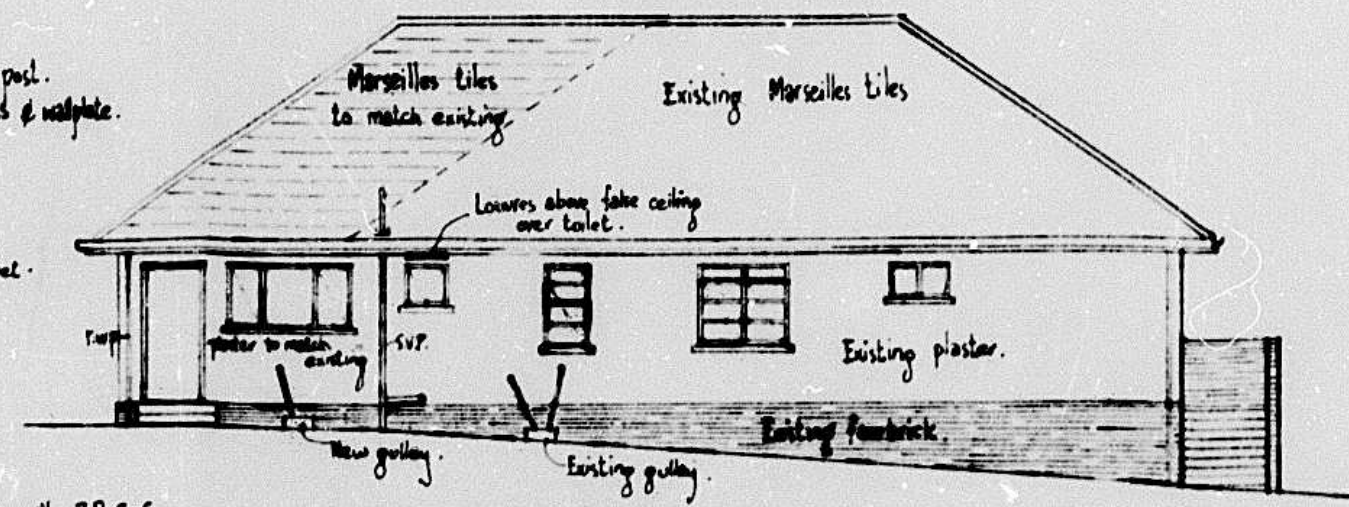 post.
& wallplate.
Marseilles tiles
to match existing
Existing Marseilles tiles
Louvres above false ceiling
over toilet.
plaster to match
existing
S.V.P.
Existing plaster.
Existing facebrick.
New gulley.
Existing gulley.